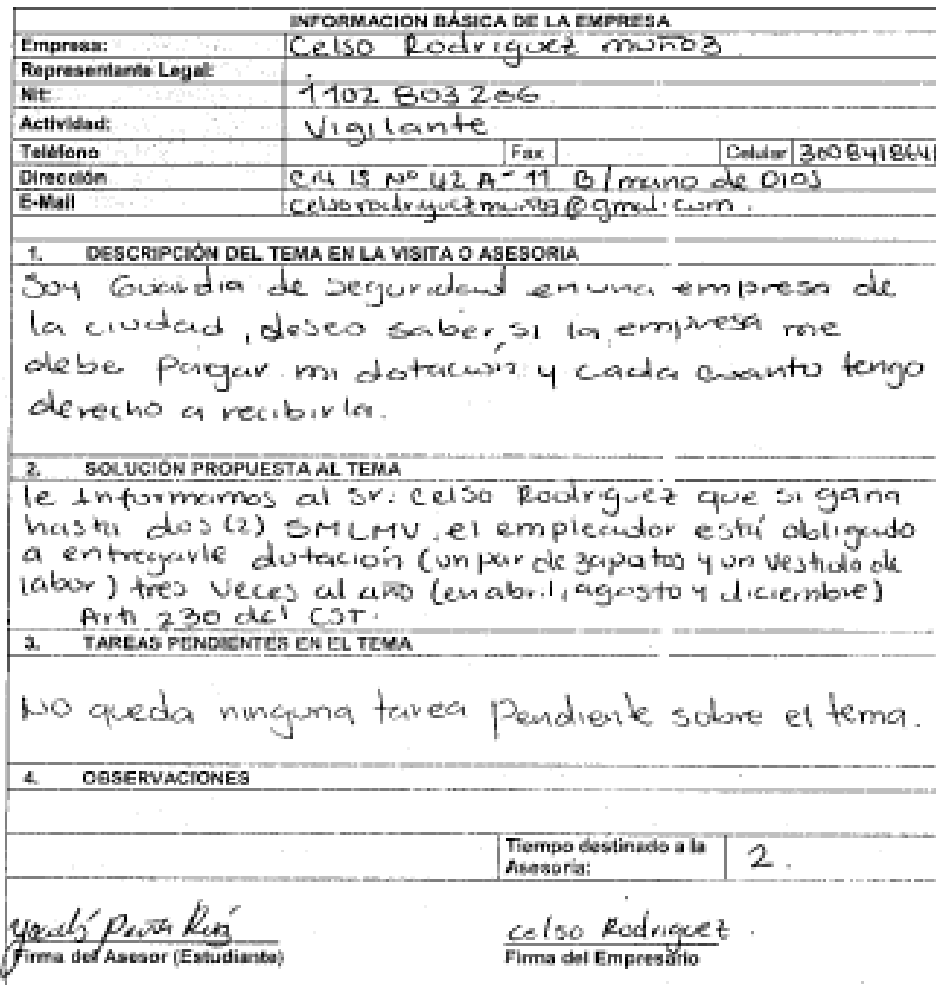 INFORMACION BÁSICA DE LA EMPRESA
Empresa: Celso Rodriguez muñoz
Representante Legal:
Nit: 1102 803266
Actividad: Vigilante
Teléfono Fax Celular
Dirección Nº 42 A - 11 B/mano de DIOS
E-Mail
1. DESCRIPCIÓN DEL TEMA EN LA VISITA O ASESORIA
Soy Guardia de seguridad en una empresa de
la ciudad, deseo saber, si la empresa me
debe Pargar mi dotación y cada cuanto tengo
derecho a recibirla.
2. SOLUCIÓN PROPUESTA AL TEMA
le Informamos al sr. Celso Rodriguez que si gana
hasta dos (2) SMLMV, el empleador está obligado
a entregarle dotación (un par de zapatos y un vestido de
labor) tres veces al año (en abril, agosto y diciembre)
Art. 230 del CST.
3. TAREAS PENDIENTES EN EL TEMA
NO queda ninguna tarea Pendiente sobre el tema.
4. OBSERVACIONES
Tiempo destinado a la
Asesoria: 2.
celso Rodriguez.
Firma del Asesor (Estudiante) Firma del Empresario